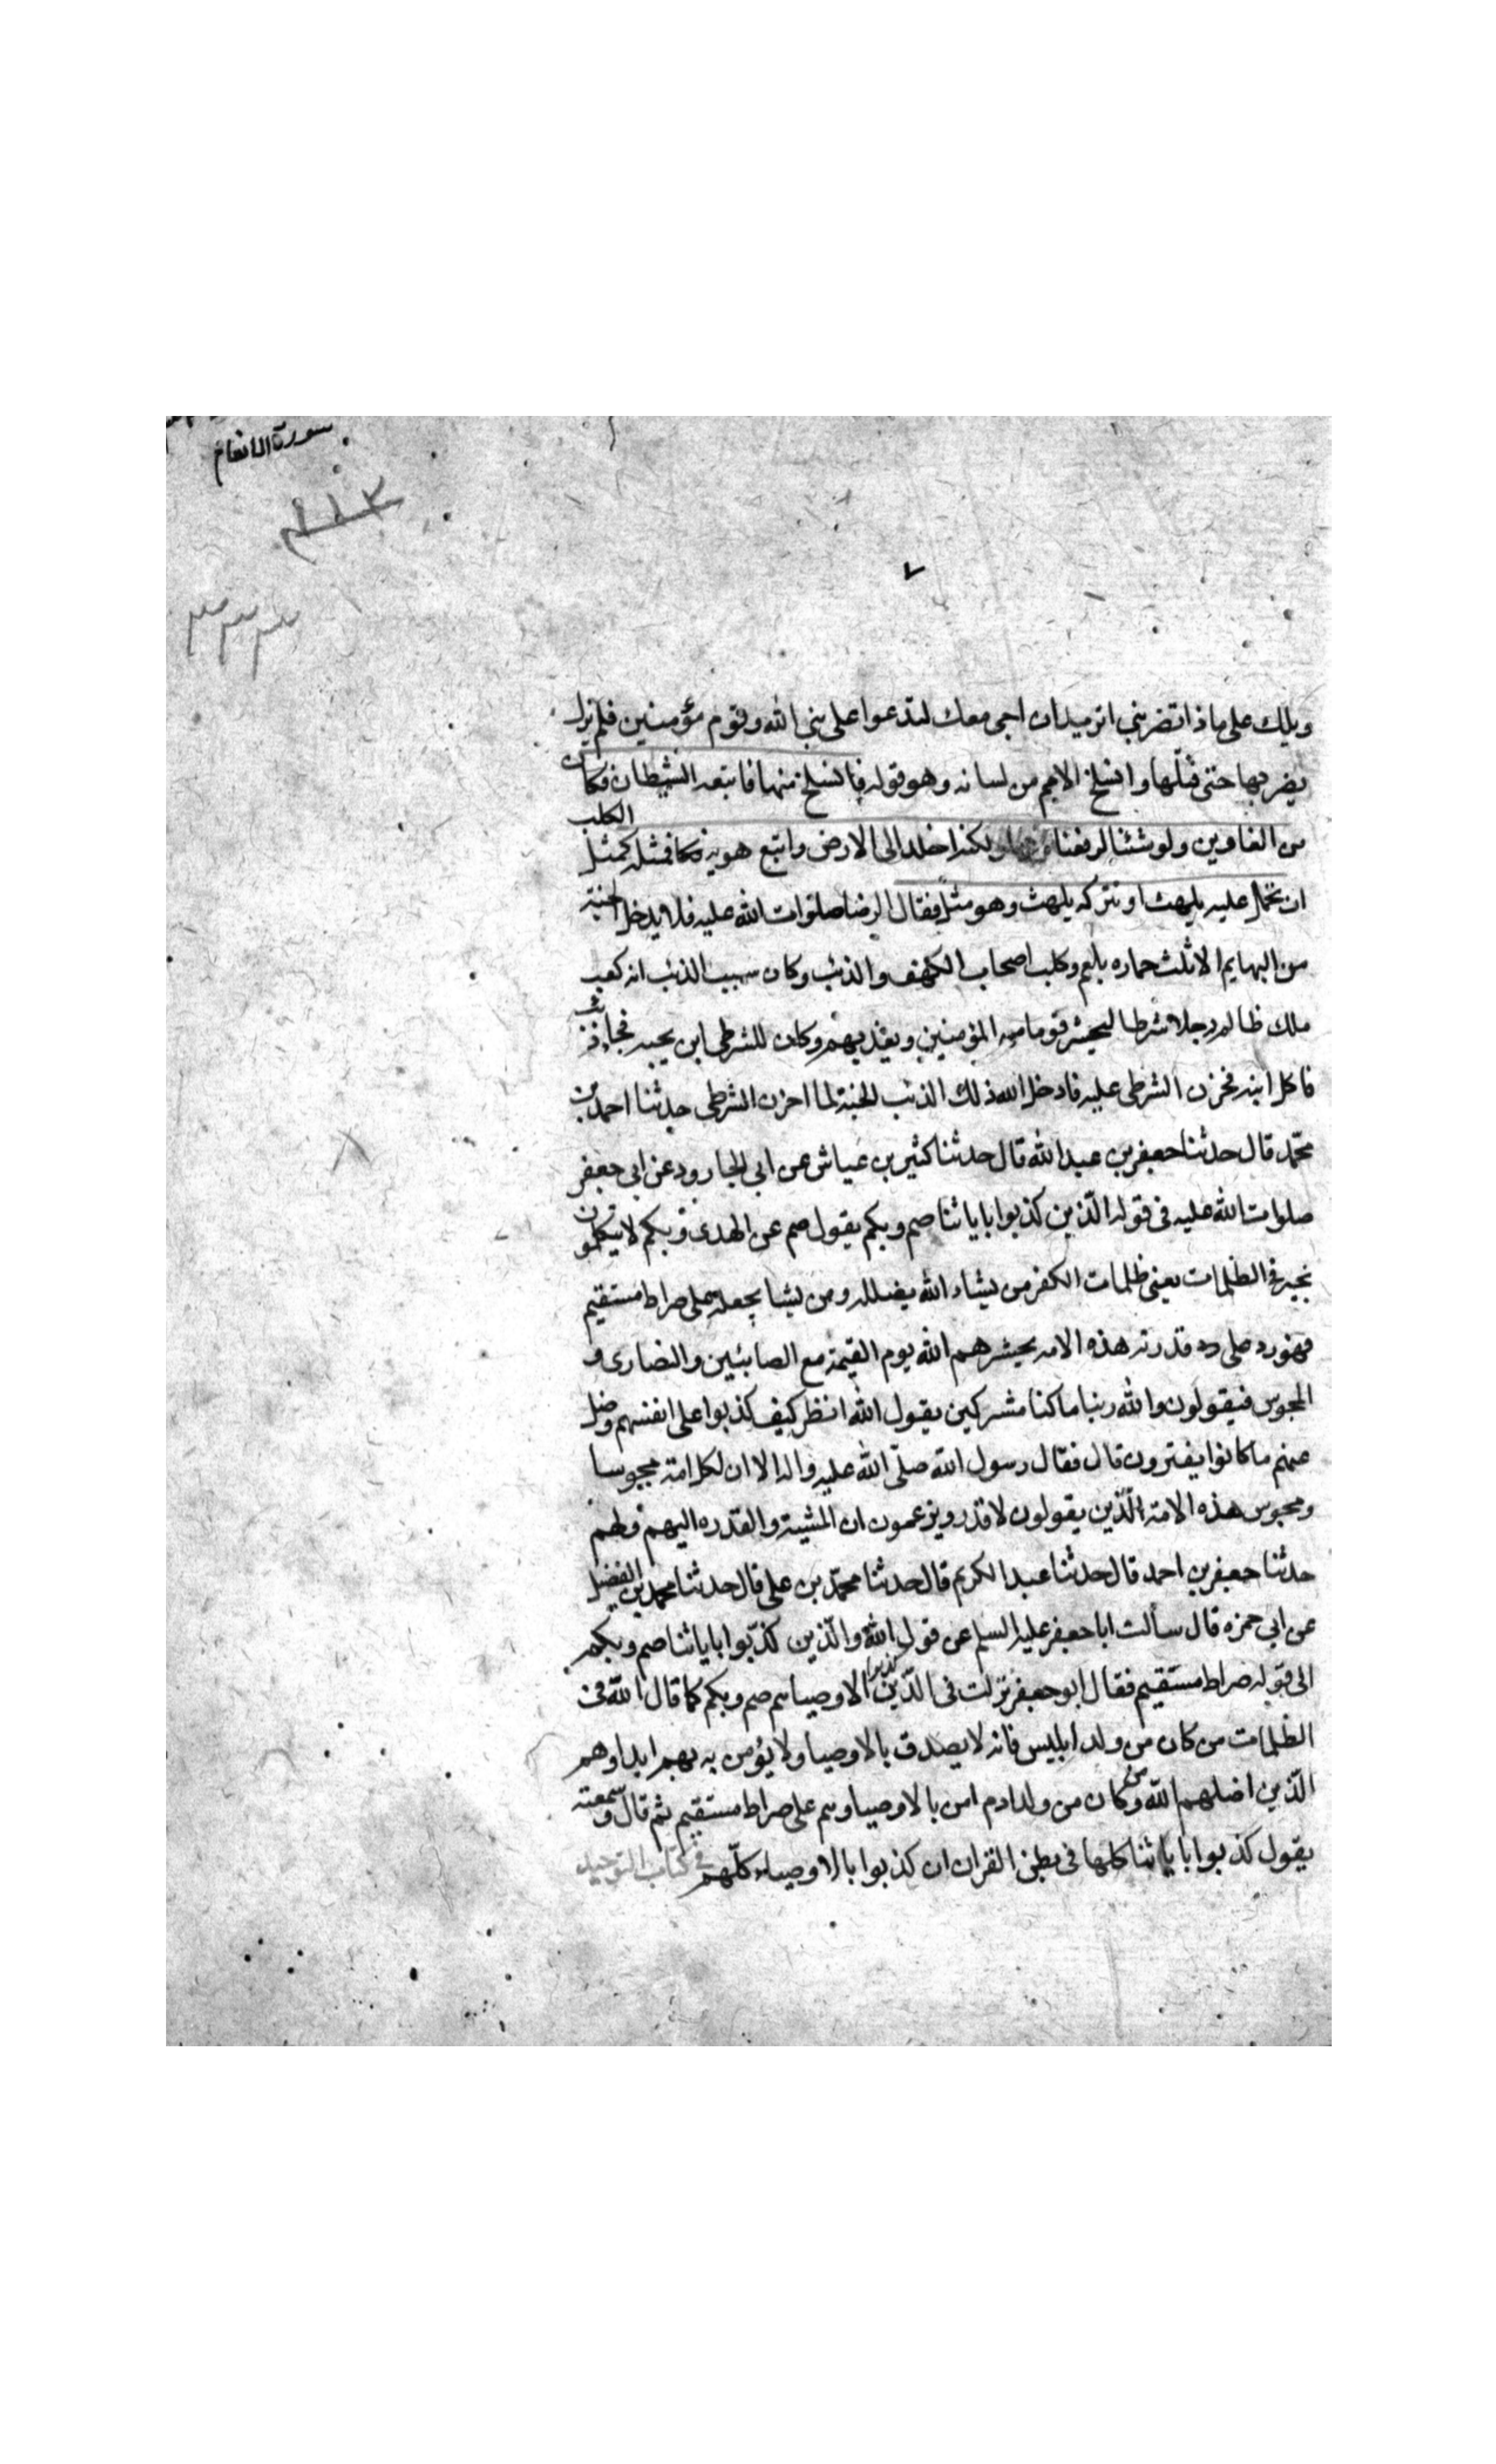 سورة الانعام
٧
ويلك على ماذا تضربني اتريد ان اجى معك لتدعوا على نبي الله وقوم مؤمنين فلم يزل
يضربها حتى قتلها وانسلخ الاسم من لسانه وهو قوله فانسلخ منها فاتبعه الشيطان فكان
من الغاوين ولو شئنا لرفعناه بها ولكنه اخلد الى الارض واتبع هويه فمثله كمثل الكلب
ان تحمل عليه يلهث او تتركه يلهث وهو مثل فقال الرضا صلوات الله عليه فلا يدخل الجنة
من البهايم الا ثلث حماره بلعم وكلب اصحاب الكهف والذئب وكان سبب الذئب انه بعث
ملك ظالم رجلا شرطيا ليحشر قوما من المؤمنين ويعذبهم وكان للشرطي ابن يحبه فجاء ذئب
فاكل ابنه فحزن الشرطي عليه فادخل الله ذلك الذئب الجنة لما احزن الشرطي حدثنا احمد بن
محمد قال حدثنا جعفر بن عبد الله قال حدثنا كثير بن عياش عن ابي الجارود عن ابي جعفر
صلوات الله عليه في قوله الذين كذبوا باياتنا صم وبكم يقول صم عن الهدى وبكم لا يتكلمون
بخير في الظلمات يعني ظلمات الكفر من يشاء الله يضلله ومن يشا يجعله على صراط مستقيم
فهو رد على قدرية هذه الامه يحشرهم الله يوم القيمة مع الصابئين والنصارى و
المجوس فيقولون والله ربنا ما كنا مشركين يقول الله انظر كيف كذبوا على انفسهم وضل
عنهم ما كانوا يفترون قال فقال رسول الله صلّى الله عليه واله الا ان لكل امة مجوسا
ومجوس هذه الامة الّذين يقولون لا قدر ويزعمون ان المشية والقدره اليهم ولهم
حدثنا جعفر بن احمد قال حدثنا عبد الكريم قال حدثنا محمّد بن على قال حدثنا محمد بن الفضيل
عن ابي حمزه قال سألت ابا جعفر عليه السلم عن قول الله والّذين كذّبوا باياتنا صم وبكم
الى قوله صراط مستقيم فقال ابو جعفر نزلت في الذين كذبوا الاوصيا هم صم وبكم كما قال الله في
الظلمات من كان من ولد ابليس فانه لا يصدق بالاوصيا ولا يؤمن به بهم ابدا وهم
الّذين اضلهم الله ومن كان من ولد ادم امن بالاوصيا وهم على صراط مستقيم ثم قال وسمعته
يقول كذبوا باياتنا كلها في بطن القران ان كذبوا بالاوصياء كلّهم في كتاب التوحيد